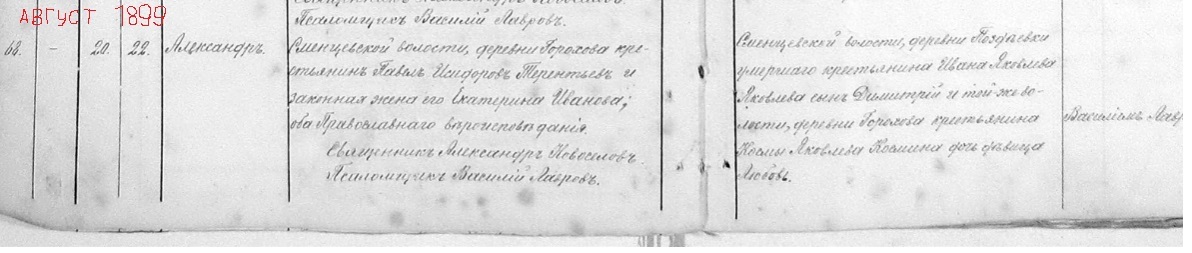 АВГУСТ 1899
Псаломщикъ Василій Лавровъ.
68. – 20. 22. Александръ.
Сменцевской волости, деревни Горохова кре-
стьянинъ Павелъ Исидоровъ Терентьевъ и
законная жена его Екатерина Иванова;
оба Православнаго вѣроисповѣданія.
Священникъ Александръ Новоселовъ.
Псаломщикъ Василій Лавровъ.
Сменцевской волости, деревни Поздѣевки
умершаго крестьянина Ивана Яковлева
Яковлева сынъ Димитрій и той-же во-
лости, деревни Горохова крестьянина
Космы Яковлева Космина дочь дѣвица
Любовь.
Василіемъ